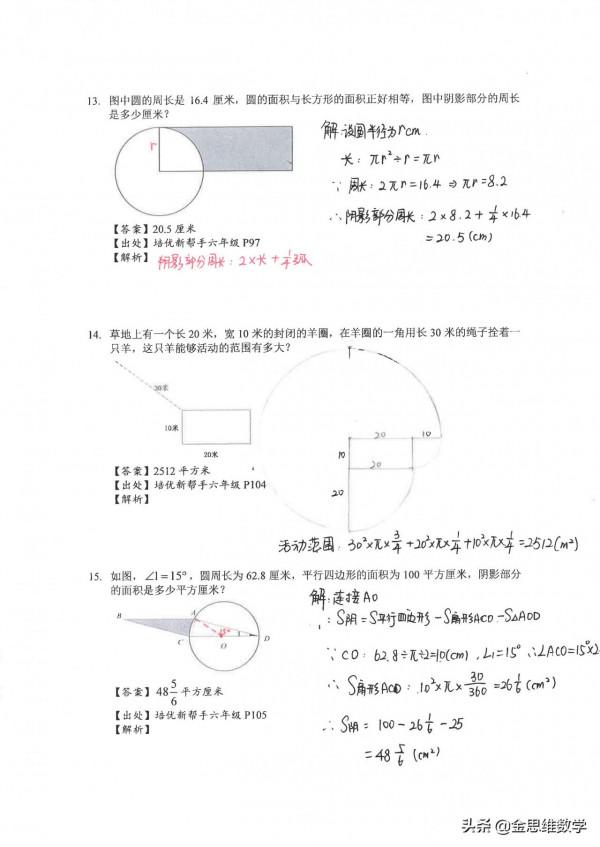 13. 图中圆的周长是 16.4 厘米，圆的面积与长方形的面积正好相等，图中阴影部分的周长
是多少厘米？
r
解：设圆半径为rcm.
长：πr²÷r=πr
∵ 周长：2πr=16.4 ⇒ πr=8.2
∴ 阴影部分周长：2×8.2+1/4×16.4
=20.5(cm)
【答案】20.5 厘米
【出处】培优新帮手六年级 P97
【解析】阴影部分周长：2×长+1/4弧
14. 草地上有一个长 20 米，宽 10 米的封闭的羊圈，在羊圈的一角用长 30 米的绳子拴着一
只羊，这只羊能够活动的范围有多大？
30米
10米
20米
20 10
10
20
20
【答案】2512 平方米
【出处】培优新帮手六年级 P104
【解析】
活动范围：30²×π×3/4+20²×π×1/4+10²×π×1/4=2512(m²)
15. 如图，∠1=15°，圆周长为 62.8 厘米，平行四边形的面积为 100 平方厘米，阴影部分
的面积是多少平方厘米？
B A C O D 15° 1
解：连接AO
∴S阴=S平行四边形-S扇形ACO-S△AOD
∵CO：62.8÷π÷2=10(cm)，∠1=15° ∴∠ACO=15°×2
∴ S扇形ACO：10²×π×30/360=26 1/6(cm²)
∴S阴= 100-26 1/6-25
=48 5/6 (cm²)
【答案】48 5/6 平方厘米
【出处】培优新帮手六年级 P105
【解析】
头条 @金思维数学